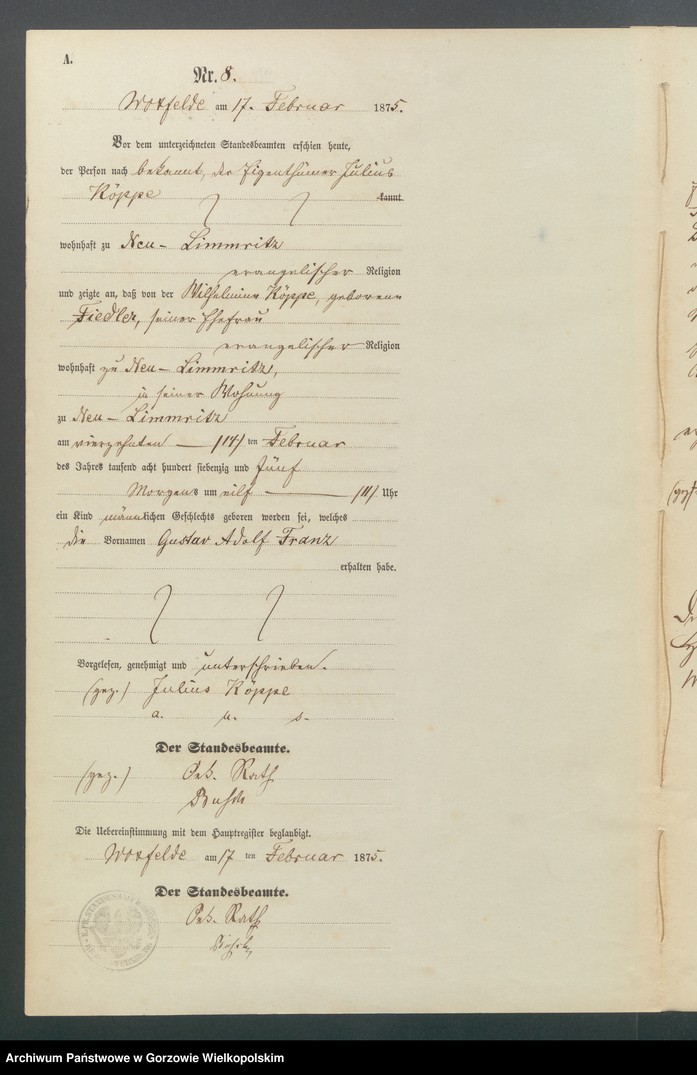 A.
Nr. 8.
Woxfelde am 17. Februar 1875.
Vor dem unterzeichneten Standesbeamten erschien heute,
der Person nach bekannt, der Eigenthümer Julius
Köppe kannt
wohnhaft zu Neu-Limmritz
evangelischer Religion
und zeigte an, daß von der Wilhelmine Köppe, geborene
Fiedler, seiner Ehefrau
evangelischer Religion
wohnhaft zu Neu-Limmritz,
in seiner Wohnung
zu Neu-Limmritz
am vierzehnten /14/ ten Februar
des Jahres tausend acht hundert siebenzig und fünf
Morgens um eilf /11/ Uhr
ein Kind männlichen Geschlechts geboren worden sei, welches
die Vornamen Gustav Adolf Franz
erhalten habe.
Vorgelesen, genehmigt und unterschrieben.
(gez.) Julius Köppe
a. u. s.
Der Standesbeamte.
(gez.) Oek. Rath
Die Uebereinstimmung mit dem Hauptregister beglaubigt.
Woxfelde am 17 ten Februar 1875.
Der Standesbeamte.
Oek. Rath
Archiwum Państwowe w Gorzowie Wielkopolskim